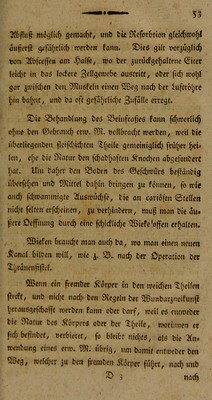 53
Abfluß möglich gemacht, und die Resorbtion gleichwohl
äusserst gefährlich werden kann. Dies gilt vorzüglich
von Abscessen am Halse, wo der zurückgehaltene Eiter
leicht in das lockere Zellgewebe austritt, oder sich wohl
gar zwischen den Muskeln einen Weg nach der Luftröhre
hin bahnt, und da oft gefährliche Zufälle erregt.
Die Behandlung des Beinfraßes kann schwerlich
ohne den Gebrauch erw. M. vollbracht werden, weil die
überliegenden fleischichten Theile gemeiniglich früher hei-
len, ehe die Natur den schadhaften Knochen abgesondert
hat. Um daher den Boden des Geschwürs beständig
übersehen und Mittel dahin bringen zu können, so wie
auch schwammigte Auswüchse, die an cariösen Stellen
nicht selten erscheinen, zu verhindern, muß man die äus-
sere Oeffnung durch eine schickliche Wieke offen erhalten.
Wieken braucht man auch da, wo man einen neuen
Kanal bilden will, wie z. B. nach der Operation der
Thränenfistel.
Wenn ein fremder Körper in den weichen Theilen
steckt, und nicht nach den Regeln der Wundarzneikunst
herausgeschafft werden kann oder darf, weil es entweder
die Natur des Körpers oder der Theile, worinnen er
sich befindet, verbietet, so bleibt nichts, als die An-
wendung eines erw. M. übrig, um damit entweder den
Weg, welcher zu den fremden Körper führt, nach und
D 3
nach